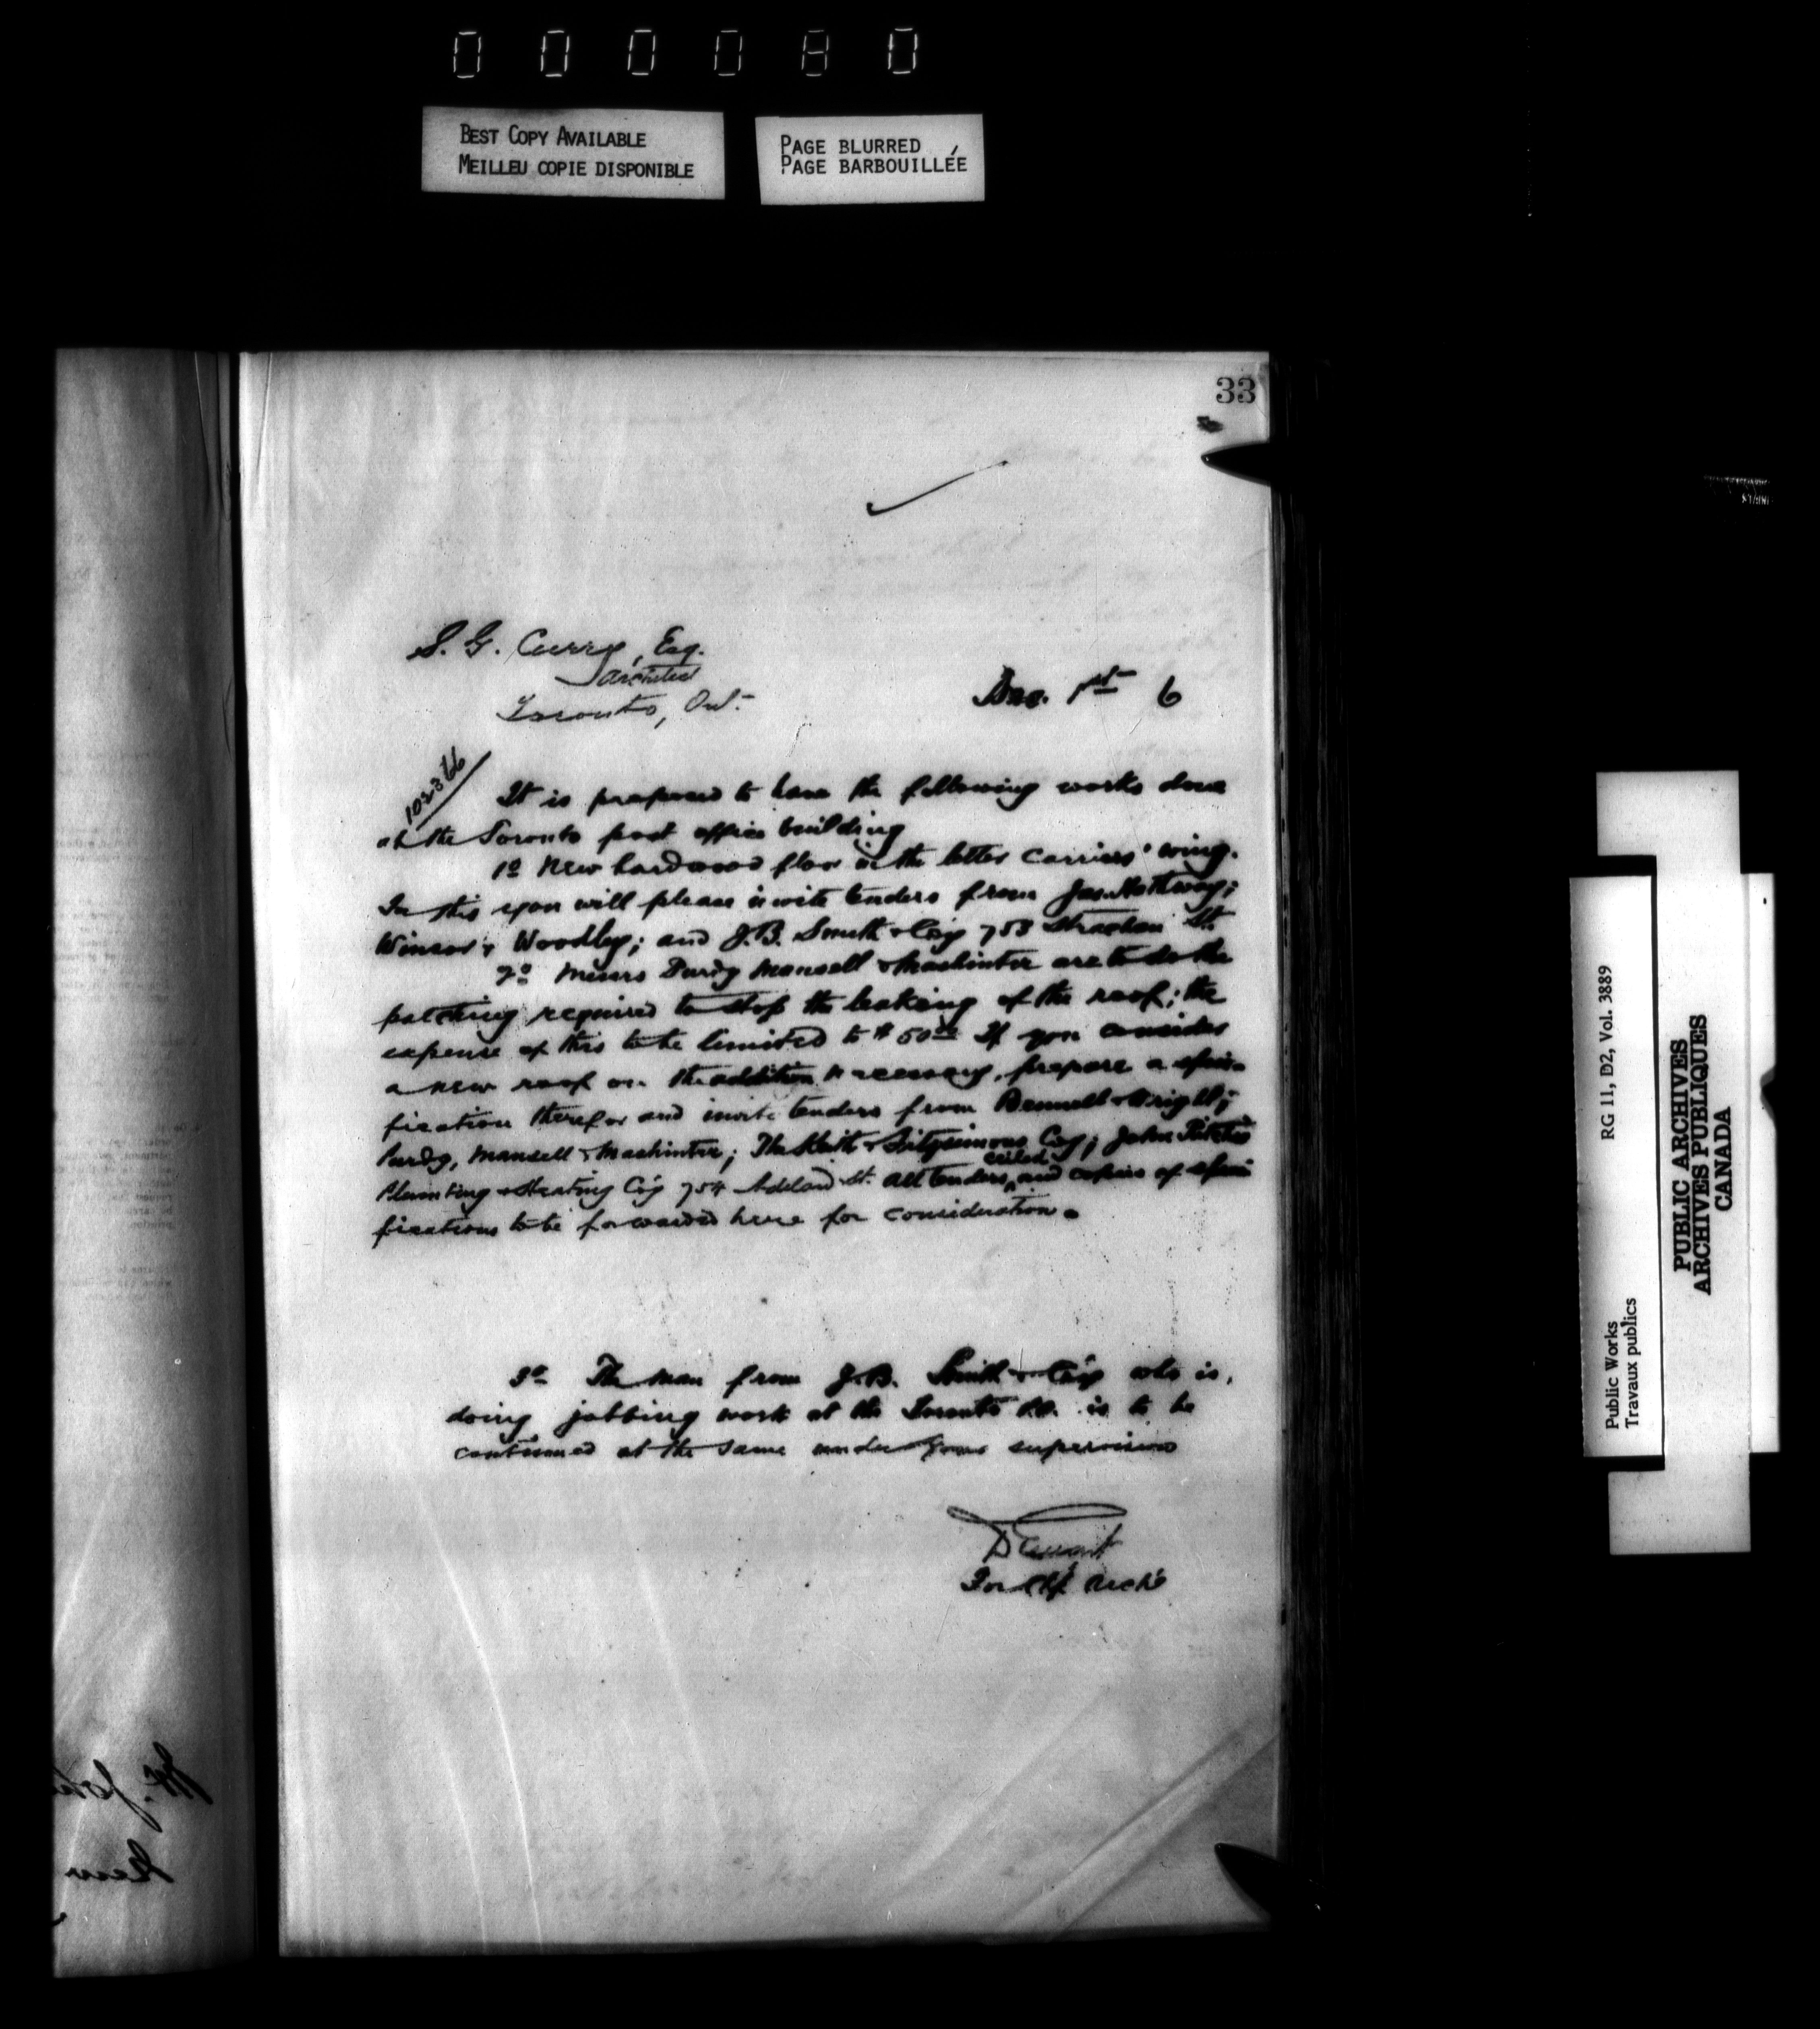 000080
BEST COPY AVAILABLE
MEILLEU COPIE DISPONIBLE
PAGE BLURRED
PAGE BARBOUILLÉE
33
S. G. Curry, Esq.
Architect
Toronto, Ont.
Dec. 1st 6
102366
It is proposed to have the following works done
at the Toronto post office building
1o New hardwood floor in the letter carriers' wing.
In this you will please invite tenders from Jas. Nothway;
Winsor & Woodley; and J.B. Smith & Coy 753 Strachan St.
2o Messrs Purdy Mansell & Mashinter are to do the
patching required to stop the leaking of the roof; the
expense of this to be limited to $50.00 If you consider
a new roof on the addition necessary, prepare a speci-
fication therefor and invite tenders from Bennett & Wright;
Purdy, Mansell & Mashinter; The Keith & Fitzsimons Coy; John Ritchie
Plumbing & Heating Coy 754 Adelaid St. All tenders, sealed and copies of speci
fications to be forwarded here for consideration.
3o The man from J.B. Smith & Coy who is,
doing jobbing work at the Toronto P.O. is to be
continued at the same under your supervision
D Ewart
For Chf Archt
RG 11, D2, Vol. 3889
Public Works
Travaux publics
PUBLIC ARCHIVES
ARCHIVES PUBLIQUES
CANADA